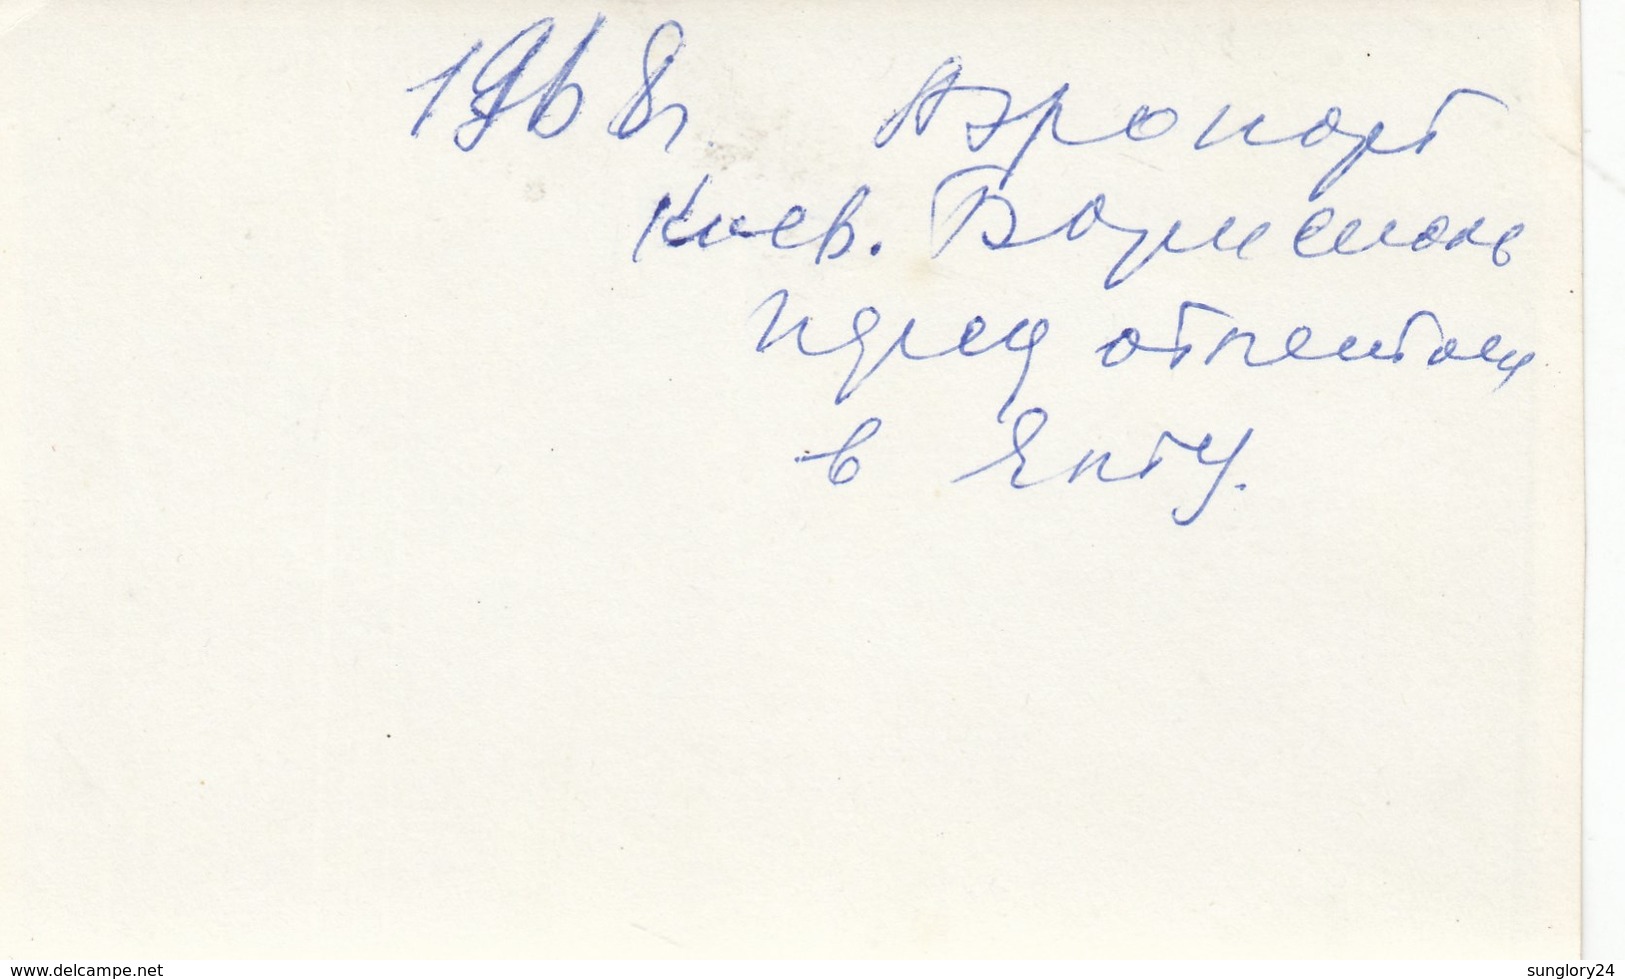 1968г. Аэропорт
Киев. Борисполь
перед отлетом
в Ялту.
www.delcampe.net
sunglory24